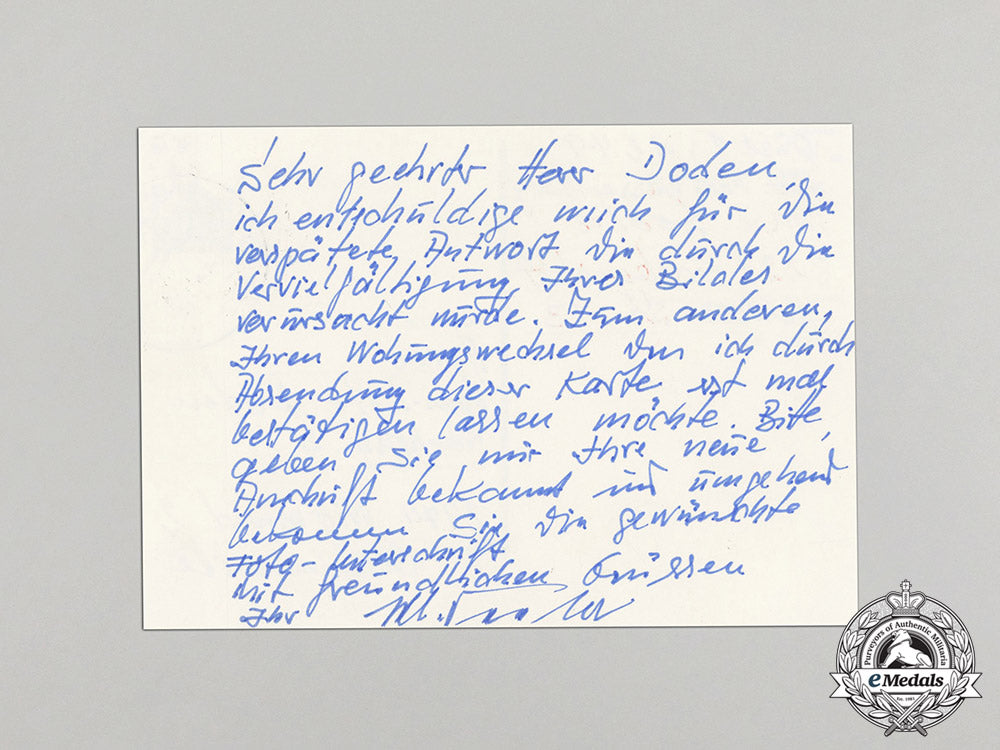 Sehr geehrter Herr Doden
ich entschuldige mich für die
verspätete Antwort die durch die
Vervielfältigung Ihres Bildes
verursacht würde. Zum anderen,
Ihren Wohungswechsel den ich durch
Absendung dieser Karte erst mal
bestätigen lassen möchte. Bitte,
geben Sie mir Ihre neue
Anschrift bekannt und umgehend
bekommen Sie die gewünschte
Foto-Unterschrift
Mit freundlichen Grüssen
Ihr
Purveyors of Authentic Militaria
eMedals
Est. 1985